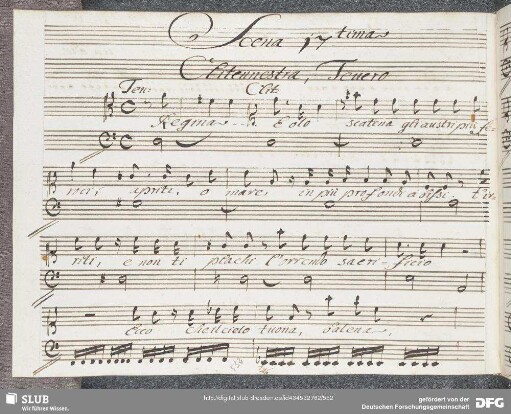 Scena 17tima
Clitennestra, Teuero
Teu: Clit.
Regina Eolo scatena gli austri più fe-
roci, apriti, o mare, in più profondi abissi t'ir-
riti, e non ti plachi l'orrendo sacri-ficio
Ecco che il cielo tuona, balena,
SLUB
Wir führen Wissen.
gefördert von der
Deutschen Forschungsgemeinschaft
DFG